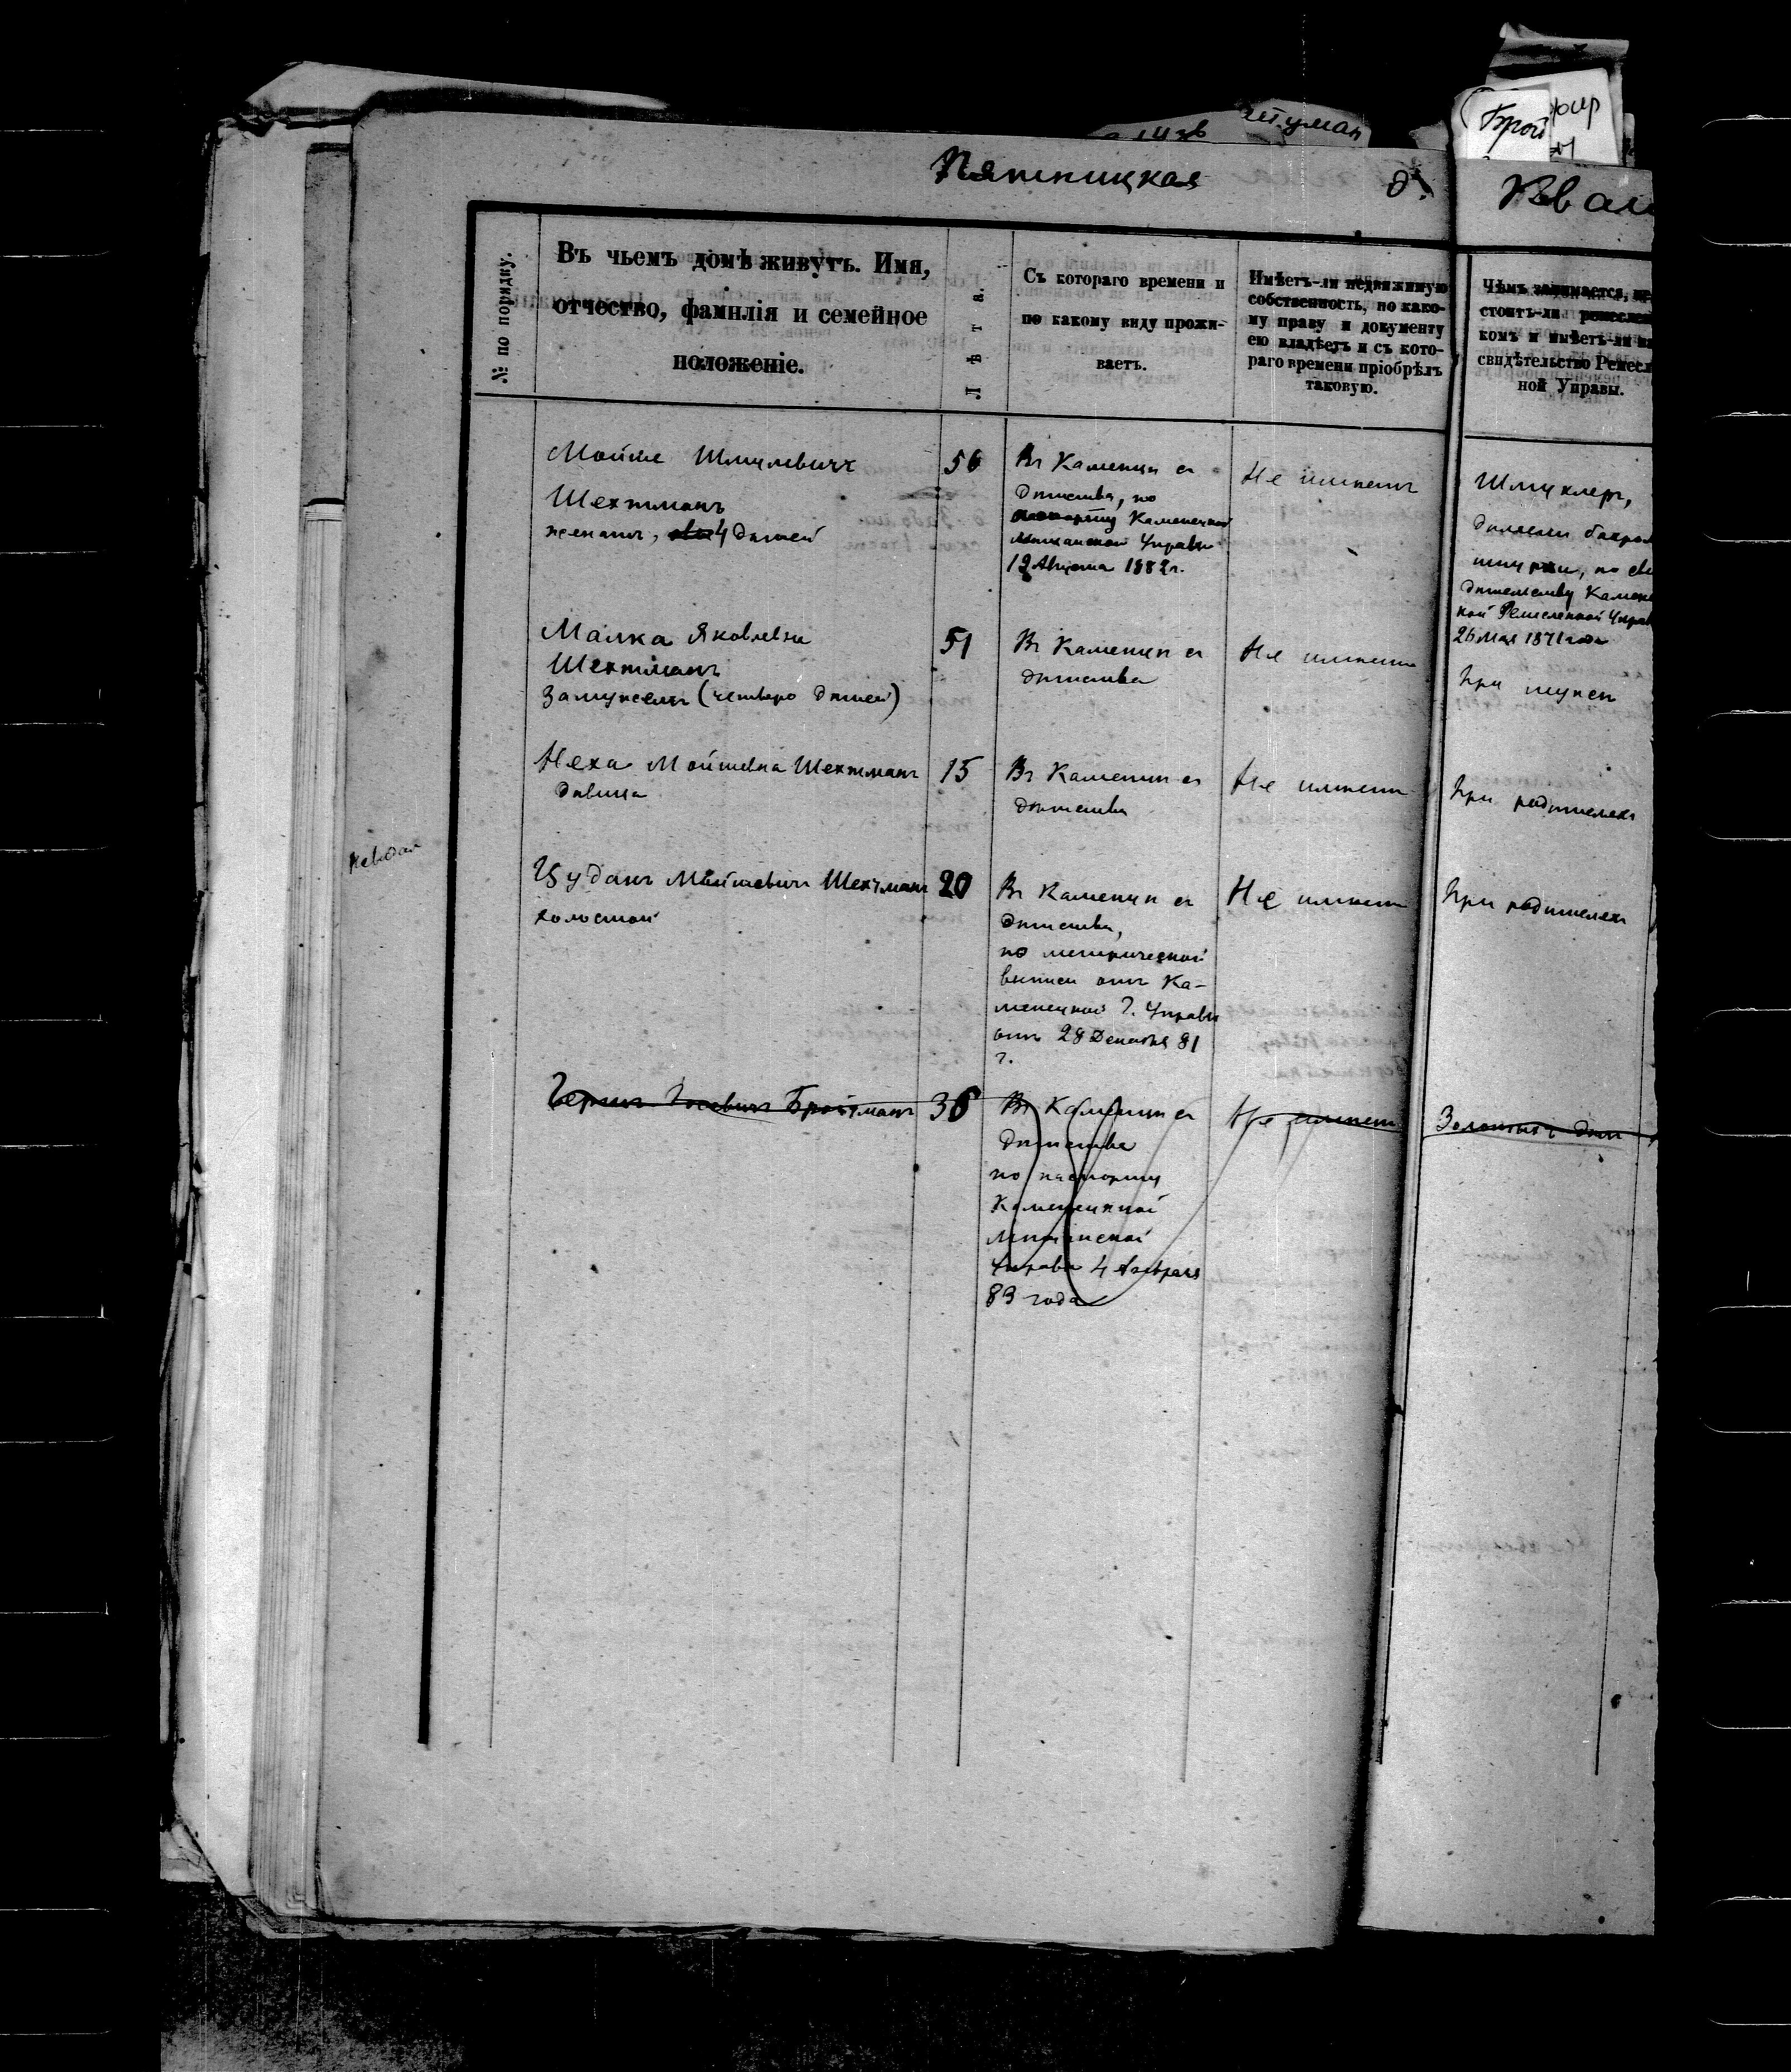 Брой
Пятницкая д.
№ по порядку.
Въ чьемъ домѣ живутъ. Имя,
отчество, фамилія и семейное
положеніе.
Лѣта.
Съ котораго времени и
по какому виду прожи-
ваетъ.
Имѣетъ-ли недвижимую
собственность, по како-
му праву и документу
ею владѣетъ и съ кото-
раго времени пріобрѣлъ
таковую.
Чѣмъ занимается,
стоитъ-ли ремеслен
комъ и имѣетъ-ли
свидѣтельство Ремесл
ной Управы.
Мойше Шмулевичъ
Шехтманъ
женатъ, 4 дѣтей
56
Въ Каменцѣ съ
дѣтства, по
паспорту Каменецкой
Мѣщанской Управы
12 Августа 1882 г.
Не имѣетъ
Шмуклеръ,
дѣлаетъ бахром
шнурки, по сви
дѣтельству Камене
кой Ремесленной Управ
26 Мая 1871 года
Малка Яковлевна
Шехтманъ
замужемъ (четверо дѣтей)
51
Въ Каменцѣ съ
дѣтства
Не имѣетъ
При мужѣ
Неха Мойшевна Шехтманъ
дѣвица
15
Въ Каменцѣ съ
дѣтства
Не имѣетъ
При родителяхъ
Мойшевичъ Шехтманъ
холостой
20
Въ Каменцѣ съ
дѣтства,
по метрической
выписи отъ Ка-
менецкой Г. Управы
отъ 28 Декабря 81
г.
Не имѣетъ
При родителяхъ
Бройтманъ
36
Въ Каменцѣ съ
дѣтства
по паспорту
Каменецкой
Мѣщанской
Управы 4 Февраля
83 года
Не имѣетъ
Золотыхъ дѣлъ